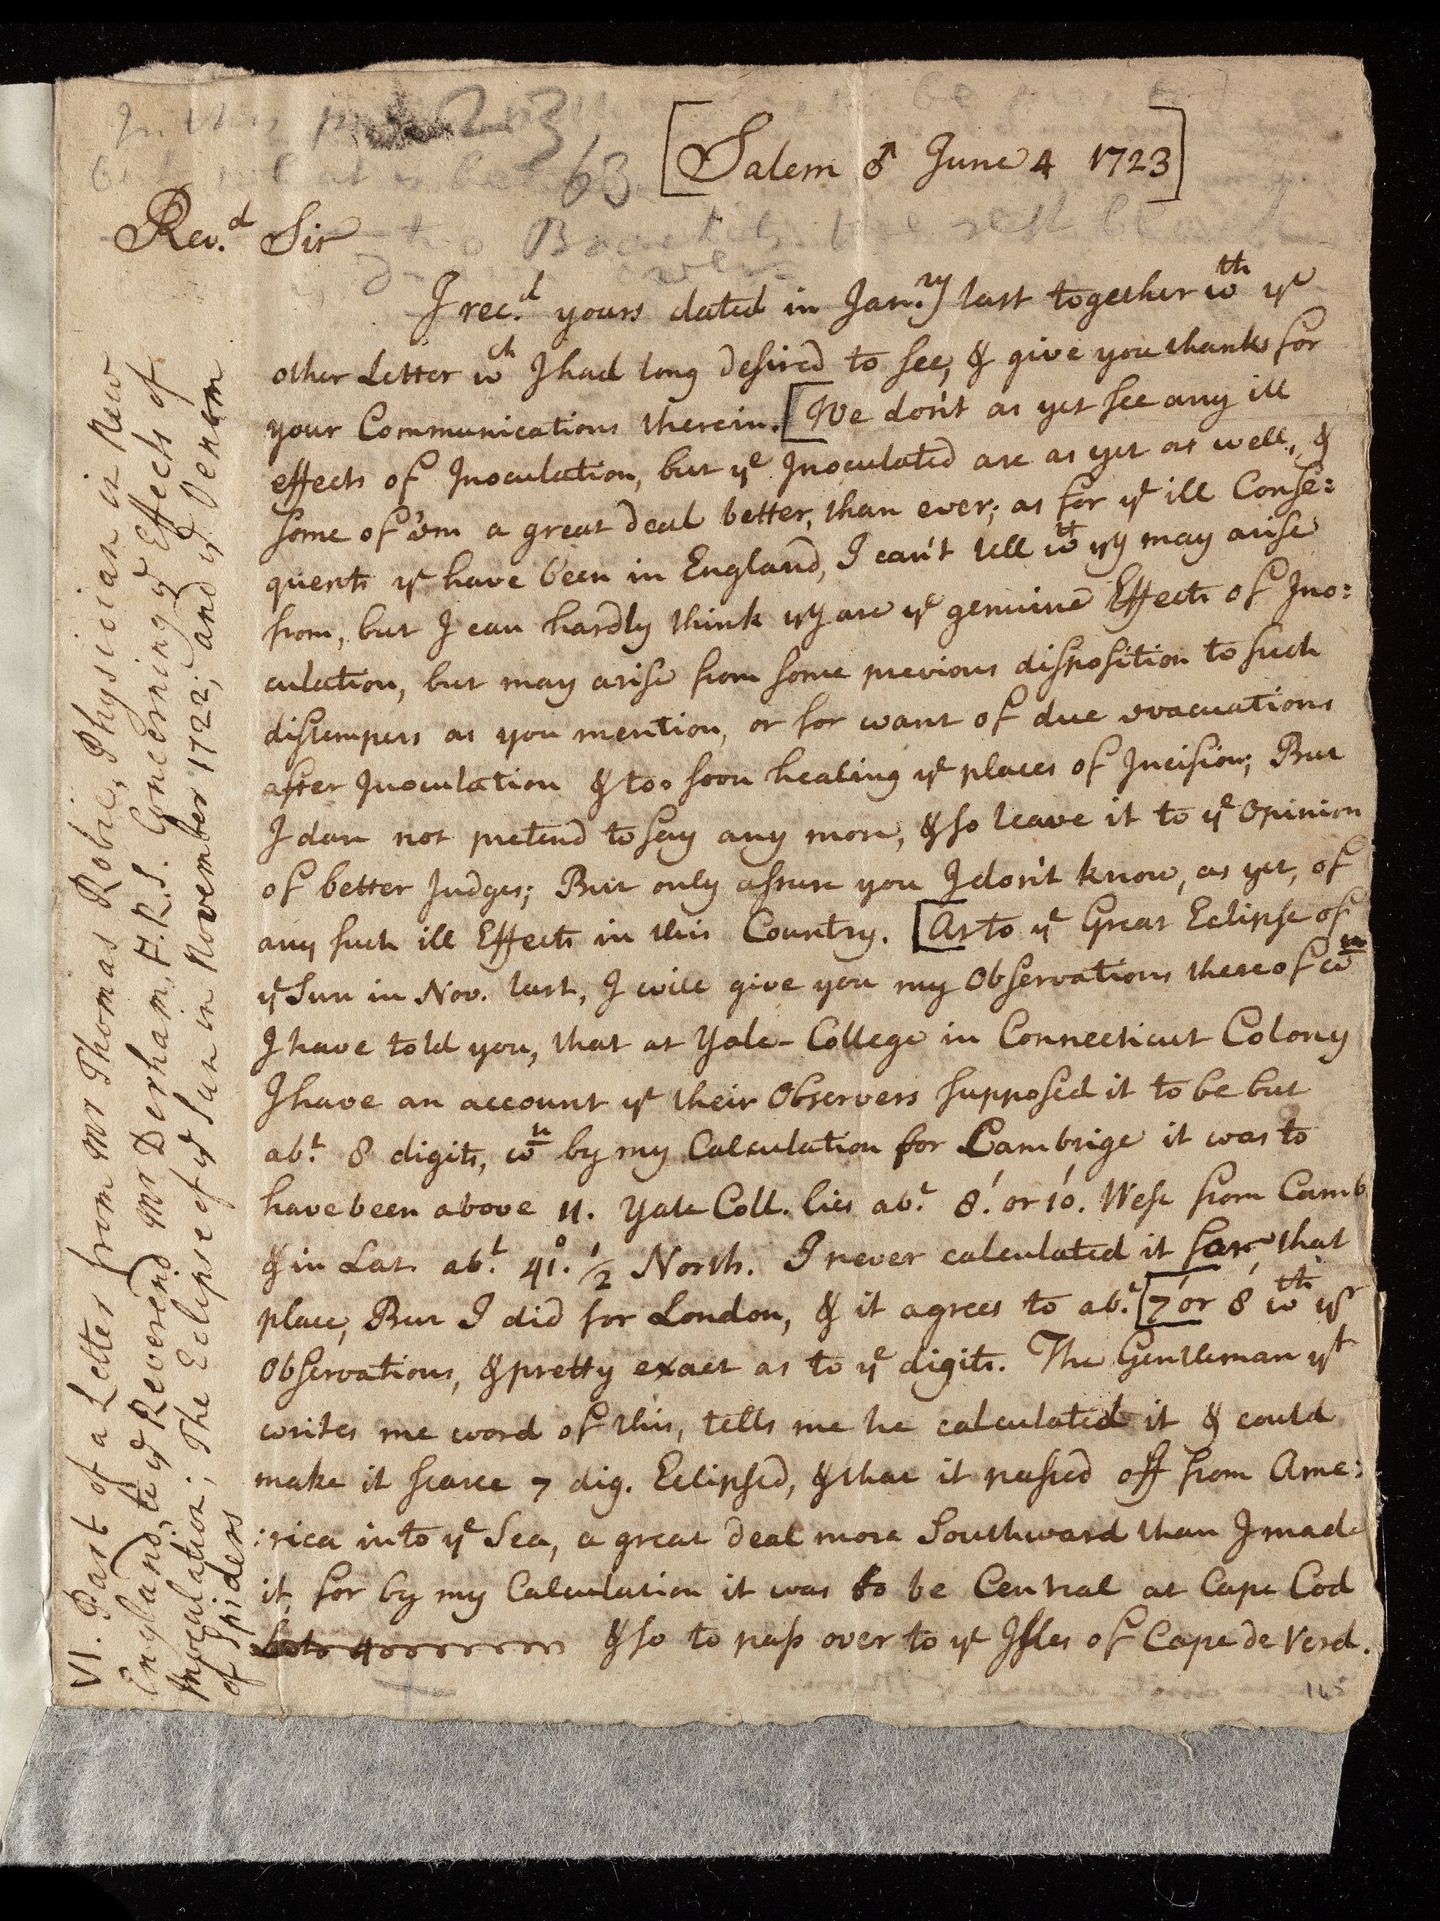 63
[Salem ♂ June 4 1723]
Rev.d Sir
I rec.d yours dated in Jan.ry last together wth ye
other Letter wch I had long desired to see, & give you thanks for
your Communications therein. [We don't as yet see any ill
effects of Inoculation, but ye Inoculated are as yet as well, &
some of 'em a great deal better, than ever; as for ye ill Conse:
quents yt have been in England, I can't tell wt yy may arise
from, but I can hardly think yy are ye genuine Effects of Ino:
culation, but may arise from some previous disposition to such
distempers as you mention, or for want of due evacuations
after Inoculation & too soon healing ye places of Incision; But
I dare not pretend to say any more, & so leave it to ye Opinion
of better Judges; But only assure you I don't know, as yet, of
any such ill Effects in this Country. [As to ye Great Eclipse of
ye Sun in Nov. last, I will give you my Observations thereof wn
I have told you, that at Yale-College in Connecticut Colony
I have an account yt their Observers supposed it to be but
abt. 8 digits, wn by my Calculation for Cambrige it was to
have been above 11. Yale Coll. lies abt. 8'. or 10'. West from Camb
& in Lat. abt. 41°. 1/2 North. I never calculated it for that
place, But I did for London, & it agrees to abt. [7' or 8' wth yr
Observations, & pretty exact as to ye digits. The Gentleman yt
writes me word of this, tells me he calculated it & could
make it scarce 7 dig. Eclipsed, & that it passed off from Ame:
:rica into ye Sea, a great deal more Southward than I made
it, for by my Calculation it was to be Central at Cape Cod
& so to pass over to ye Isles of Cape de Verd.
145
VI. Part of a Letter from Mr Thomas Robie, Physician in New
England, to ye Reverend Mr Derham, F.R.S. Concerning ye Effects of
Inoculation; The Eclipse of ye Sun in November 1722; and ye Venom
of Spiders